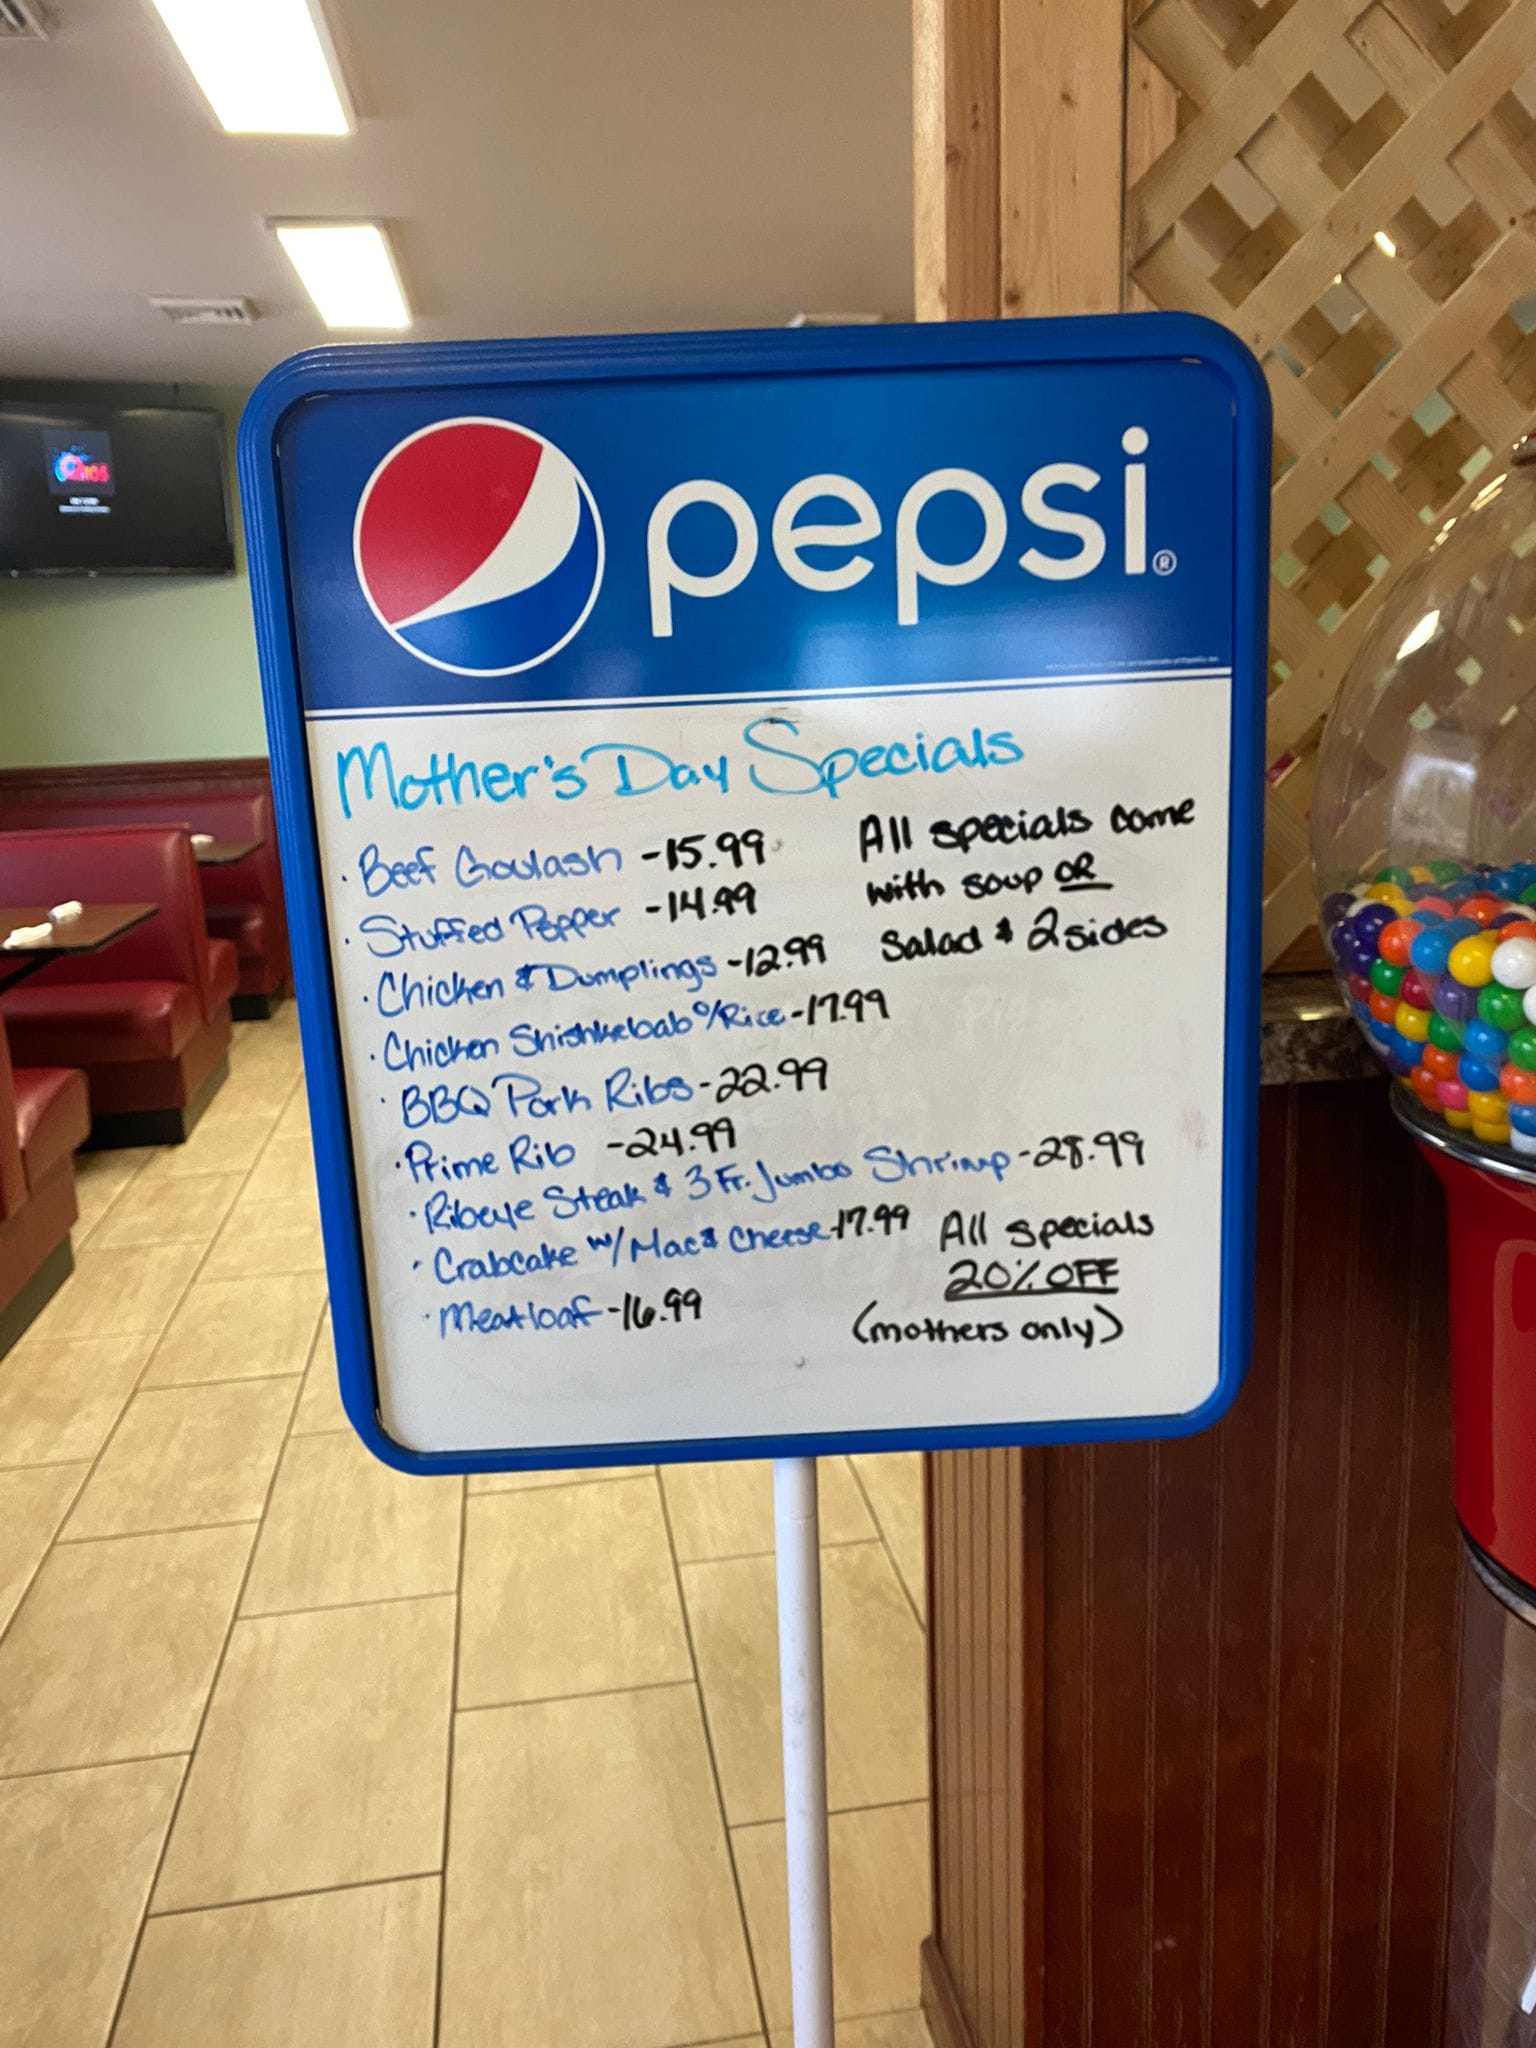 pepsi®
Mother's Day Specials
· Beef Goulash -15.99
· Stuffed Pepper -14.99
· Chicken & Dumplings -12.99
· Chicken Shishkebab o/Rice -17.99
· BBQ Pork Ribs -22.99
· Prime Rib -24.99
· Ribeye Steak & 3 Fr. Jumbo Shrimp -28.99
· Crabcake w/ Mac & Cheese -17.99
· Meatloaf -16.99
All specials come
with soup OR
Salad & 2 sides
All specials
20% OFF
(mothers only)